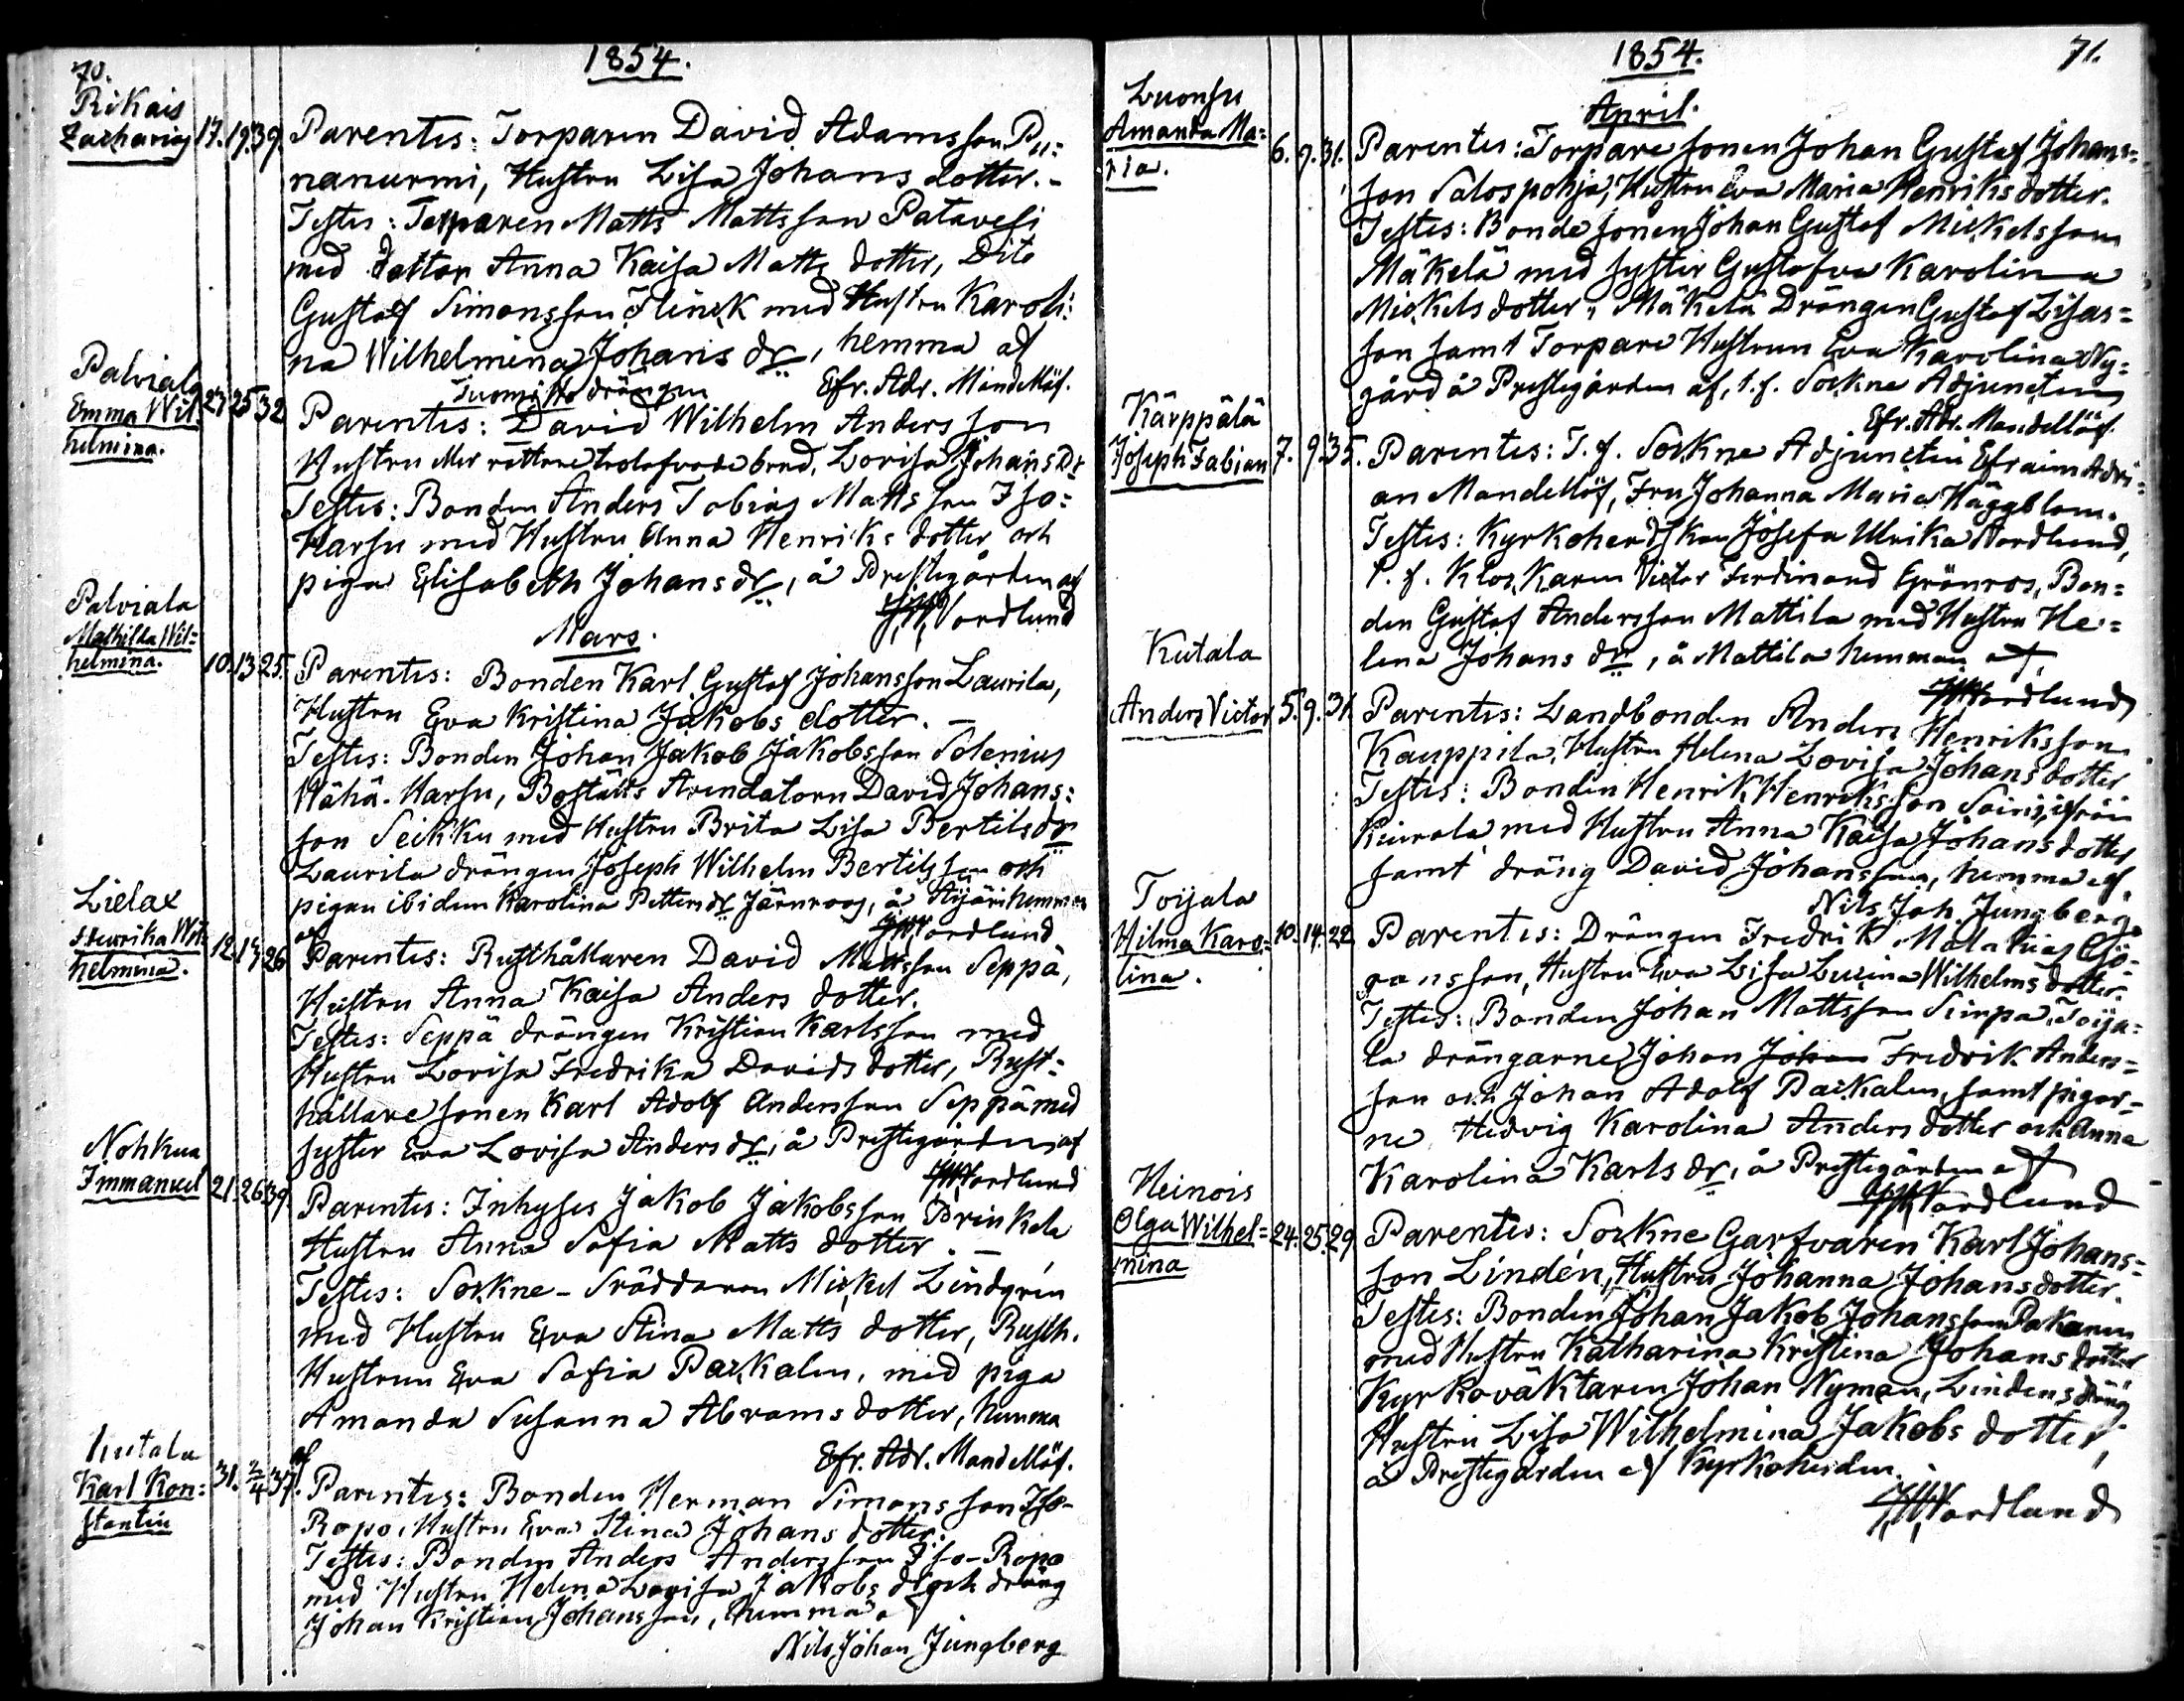 70.
1854.
Rikais
Zacharias 17. 19. 39. Parentes: Torparen David Adamsson Pu=
nanurmi, Hustru Lisa Johans dotter. -
Testes: Torparen Matts Mattsson Patavesi
med dotter Anna Kaisa Matts dotter, Dito
Gustaf Simonsson Flinck med Hustru Karoli=
na Wilhelmina Johans dr, hemma af
Efr. Adr. Mandellöf.
Palviala
Emma Wil= 23 25 32
helmina.
drängen
Parentes: David Wilhelm Andersson
Hustru eller rättare trolofvade brud, Lovisa Johans Dr
Testes: Bonden Anders Tobias Mattsson Iso=
Harsu med Hustru Anna Henriks dotter och
piga Elisabeth Johans dr, å Prestegården af
Nordlund
Mars.
Palviala
Mathilda Wil=
helmina. 10. 13 25. Parentes: Bonden Karl Gustaf Johansson Laurila,
Hustru Eva Kristina Jakobs dotter. -
Testes: Bonden Johan Jakob Jakobsson Polenius
Wähä-Harsu, Boställs Arendatorn David Johans=
son Seikku med Hustru Brita Lisa Bertils dr
Laurila drängen Joseph Wilhelm Bertilsson och
pigan ibidem Karolina Petters dr Järnroos, å Äijäri hemman
af Nordlund
Lielax
Henrika Wil= 12. 19 26
helmina.
Parentes: Rusthållaren David Mattsson Seppä,
Hustru Anna Kaisa Anders dotter.
Testes: Seppä drängen Kristian Karlsson med
Hustru Lovisa Fredrika Davids dotter, Rust=
hållare sonen Karl Adolf Andersson Seppä med
syster Eva Lovisa Anders dr, å Prestegården af
Nordlund
Nohkua
Immanuel 21. 26 39. Parentes: Inhyses Jakob Jakobsson Prinkala
Hustru Anna Sofia Matts dotter. -
Testes: Sockne-Skräddaren Mickel Lindgrén
med Hustru Eva Stina Matts dotter, Rusth.
Hustrun Eva Sofia Packalen, med piga
Amanda Susanna Abrams dotter, hemma
af Efr. Adr. Mandellöf.
Kutala
Karl Kon= 31. 2/4 37. Parentes: Bonden Herman Simonsson Iso-
stantin
Ropo, Hustru Eva Stina Johans dotter.
Testes: Bonden Anders Andersson Iso-Ropo
med Hustru Helena Lovisa Jakobs dr och dräng
Johan Kristian Johansson, hemma af
Nils Johan Jungberg
1854. 71.
April.
Luonsu
Amanda Ma= 6. 9. 31. Parentes: Torpare sonen Johan Gustaf Johans=
ria.
son Salospohja, Hustru Eva Maria Henriks dotter.
Testes: Bonde sonen Johan Gustaf Mickelsson
Mäkelä med syster Gustafva Karolina
Mickels dotter, Mäkelä Drängen Gustaf Lisas=
son samt Torpare Hustrun Eva Karolina Ny=
gård å Prestegården af, t. f. Sockne Adjuncten
Efr. Adr. Mandellöf.
Kärppälä
Joseph Fabian 7. 9. 35. Parentes: T. f. Sockne Adjuncten Efraim Adri=
an Mandellöf, Fru Johanna Maria Häggblom.
Testes: Kyrkoherdskan Josefa Ulrika Nordlund,
t. f. Klockaren Victor Ferdinand Grönros, Bon=
den Gustaf Andersson Mattila med Hustru He=
lena Johans dr, å Mattila hemman af
Nordlund
Kutala
Anders Victor 5. 9. 31. Parentes: Landbonden Anders Henriksson
Kauppila, Hustru Helena Lovisa Johans dotter
Testes: Bonden Henrik Henriksson från
Kiurala med Hustru Anna Kaisa Johans dotter
samt dräng David Johansson, hemma af
Nils Joh. Jungberg
Toijala
Hilma Karo= 10. 14. 22. Parentes: Drängen Fredrik Mathias Gö=
lina.
ransson, Hustru Eva Lisa Lucina Wilhelms dotter.
Testes: Bonden Johan Mattsson Simpa, Toija=
la drängarne, Johan Johan Fredrik Anders=
son och Johan Adolf Packalen, samt pigor=
ne Hedvig Karolina Anders dotter och Anna
Karolina Karls dr, å Prestegården af
Nordlund
Heinois
Olga Wilhel= 24. 25. 29. Parentes: Sockne Garfvaren Karl Johans=
mina
son Lindén, Hustru Johanna Johans dotter.
Testes: Bonden Johan Jakob Johansson Pakanen
med Hustru Katharina Kristina Johans dotter
Kyrkoväktaren Johan Nyman, Lindens dräng
Hustru Lisa Wilhelmina Jakobs dotter,
å Prestegården af Kyrkoherden.
Nordlund